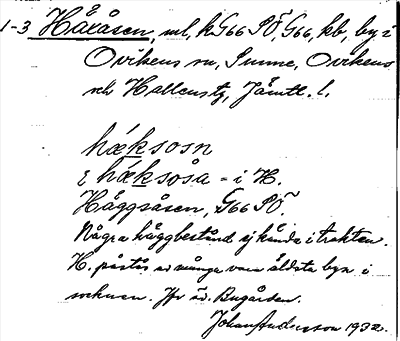 1-3 Håxåsen, ml, k G66 SÖ, G66, kb, by i
Ovikens sn, Sunne, Ovikens
och Hallens tg, Jämtl. l.
hæksosn
hæksoså = i H.
Häggsåsen, G66 SÖ.
Några häggbestånd ej kända i trakten.
H. påstås av många vara äldsta byn i
socknen. Jfr äv. Bugården.
Johan Anderson 1932.